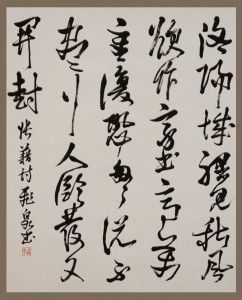 洛陽城裡見秋風
欲作家書意萬
重復恐匆匆說不
盡行人臨發又
開封 張籍詩